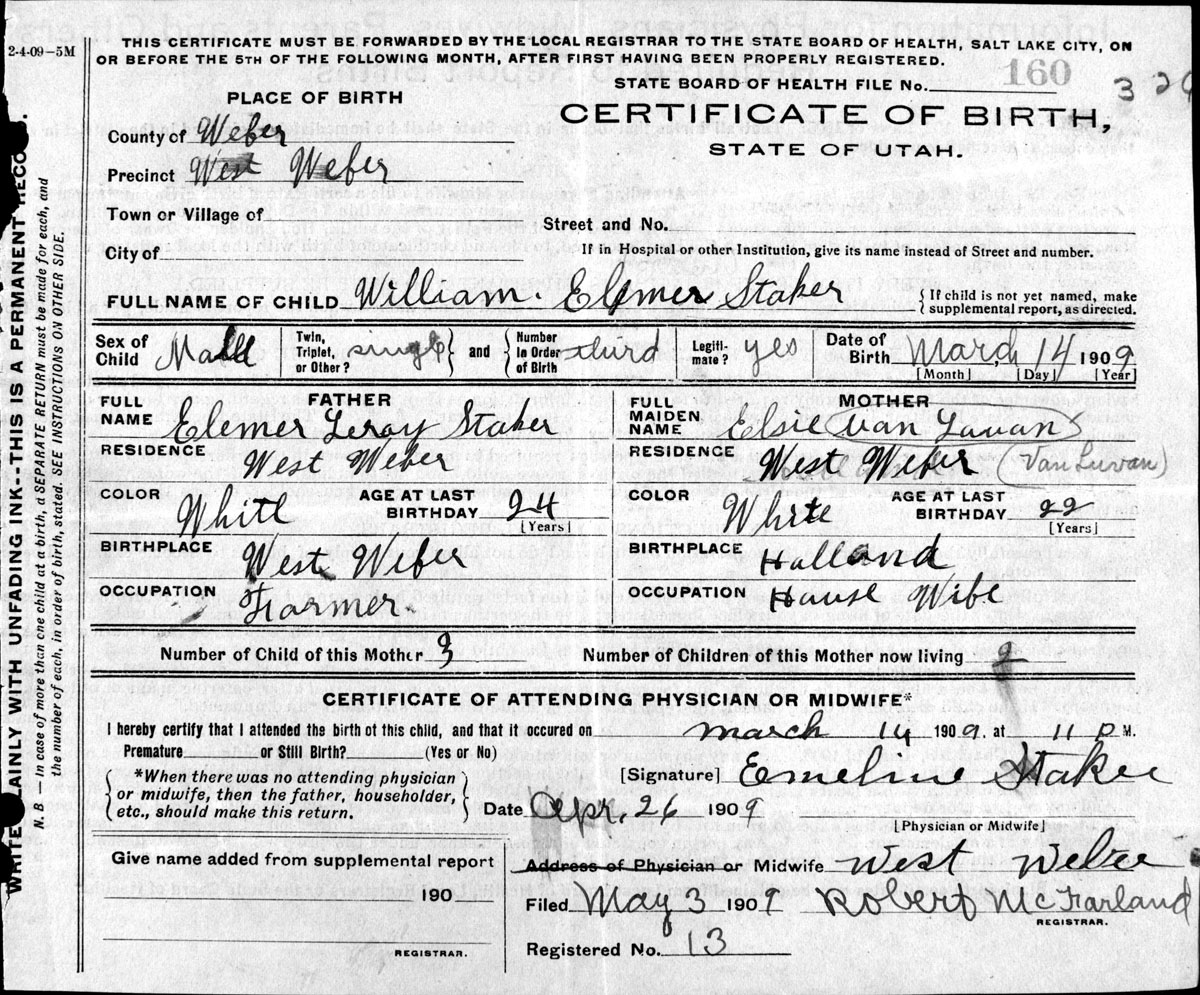 2-4-09-5M
THIS CERTIFICATE MUST BE FORWARDED BY THE LOCAL REGISTRAR TO THE STATE BOARD OF HEALTH, SALT LAKE CITY, ON
OR BEFORE THE 5TH OF THE FOLLOWING MONTH, AFTER FIRST HAVING BEEN PROPERLY REGISTERED.
160
STATE BOARD OF HEALTH FILE No.
PLACE OF BIRTH
CERTIFICATE OF BIRTH,
STATE OF UTAH.
County of Weber
Precinct West Weber
Town or Village of
Street and No.
City of
If in Hospital or other Institution, give its name instead of Street and number.
FULL NAME OF CHILD William. Elemer Staker
{If child is not yet named, make supplemental report, as directed.
Sex of Child Male
Twin, Triplet, or Other? single } and { Number in Order of Birth third
Legiti-mate? yes
Date of Birth March 14 1909
[Month] [Day] [Year]
FATHER
FULL NAME Elemer Leroy Staker
RESIDENCE West Weber
COLOR White AGE AT LAST BIRTHDAY 24
[Years]
BIRTHPLACE West Weber
OCCUPATION Farmer.
MOTHER
FULL MAIDEN NAME Elsie Van Luvan
RESIDENCE West Weber (Van Luvan)
COLOR White AGE AT LAST BIRTHDAY 22
[Years]
BIRTHPLACE Holland
OCCUPATION House Wife
Number of Child of this Mother 3
Number of Children of this Mother now living 2
CERTIFICATE OF ATTENDING PHYSICIAN OR MIDWIFE*
I hereby certify that I attended the birth of this child, and that it occured on march 14 1909. at 11 P M.
Premature or Still Birth? (Yes or No)
{*When there was no attending physician
or midwife, then the father, householder,
etc., should make this return.}
[Signature] Emeline Staker
Date Apr, 26 1909
[Physician or Midwife]
Give name added from supplemental report
190
REGISTRAR.
Address of Physician or Midwife West Weber
Filed May 3 1909 Robert McFarland
REGISTRAR.
Registered No. 13
AINLY WITH UNFADING INK--THIS IS A PERMANENT RECO
N. B.—In case of more than one child at a birth, a SEPARATE RETURN must be made for each, and
the number of each, in order of birth, stated. SEE INSTRUCTIONS ON OTHER SIDE.